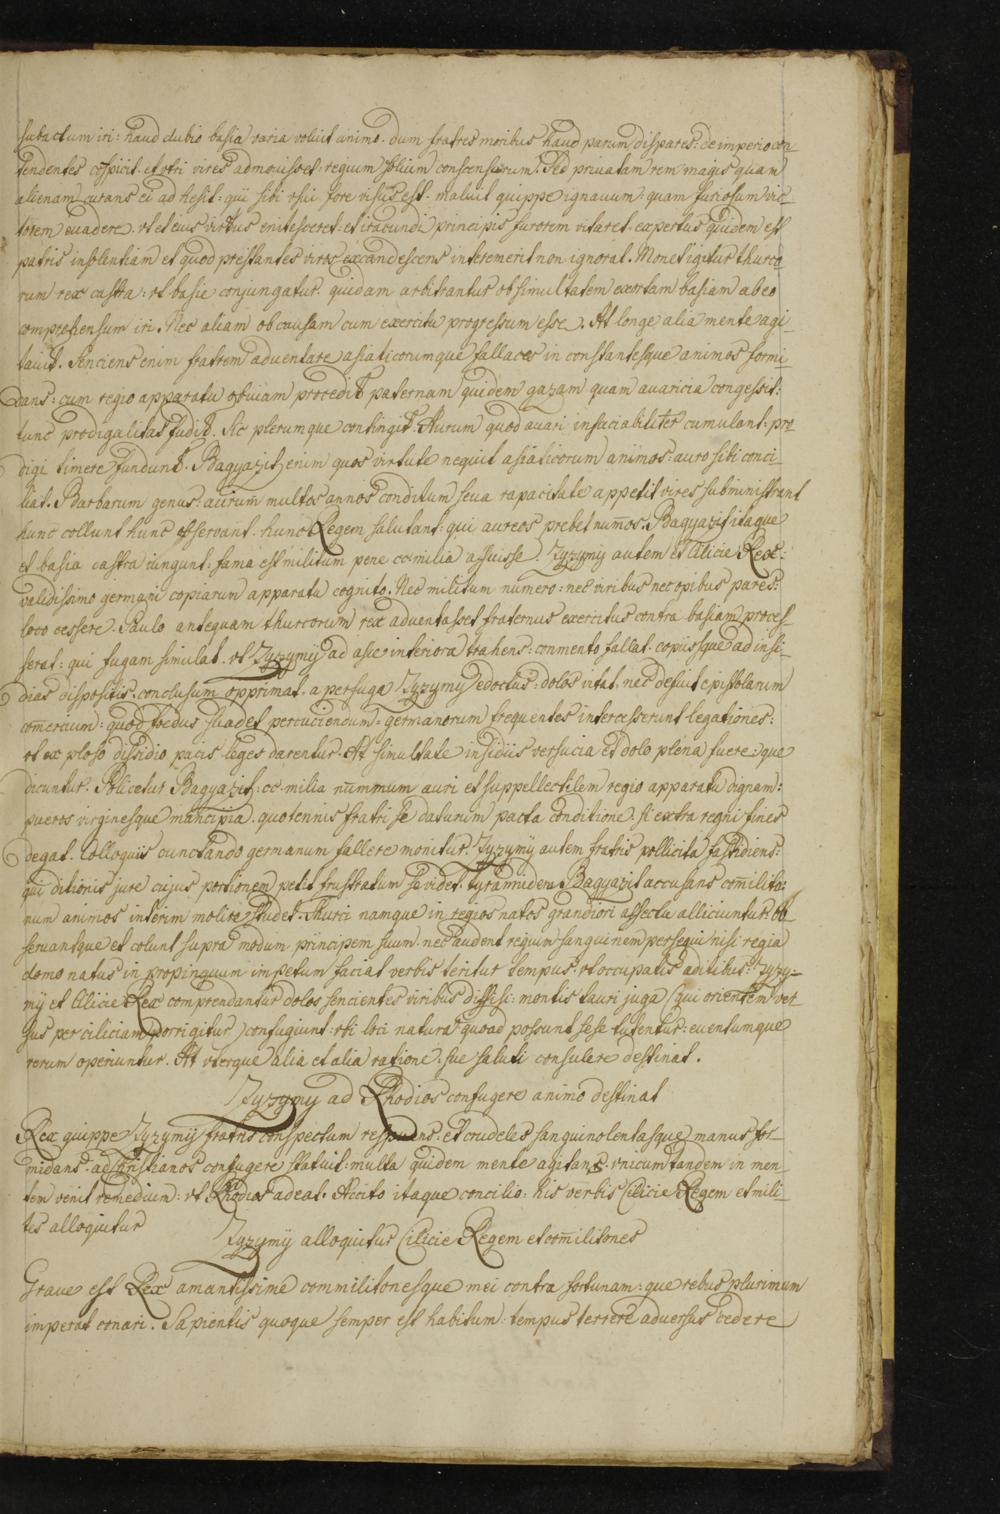 subactum iri: haud dubio basia varia voluit animo. dum fratres moribus haud parum dispares: de imperio con-
tendentes cospicit. et utri vires admouisset: regium solium consensurum. Sed priuatam rem magis quam
alienam curans ei adhesit: qui sibi usui fore visus est. maluit quippe ignauum: quam furiosum vic-
torem euadere. ut et eius virtus enitesceret: et iracundi principis furorem vitaret. expertus quidem est
patris insolentiam et quod prestantes viros excandescens interemerit non ignorat. Monet igitur thurco-
rum rex castra: ut basie conjungatur. quidam arbitrantur ob simultatem exortam basiam ab eo
comprehensum iri. Nec aliam ob causam cum exercitu progressum esse. At longe alia mente agi-
tauit. Senciens enim fratrem aduentare asiaticorumque fallaces in constantesque animos formi-
dans: cum regio apparatu obuiam procedit paternam quidem gazam quam auaricia congessit:
tunc prodigalitas fudit. Sic plerumque contingit. Aurum quod auari insaciabiliter cumulant: pro-
digi timere fundunt. Bagyazit enim quos virtute nequit asiaticorum animos: auro sibi conci-
liat. Barbarum genus: aurum multos annos conditum seua rapacitate appetit vires subministrant
hunc collunt hunc obseruant. hunc Regem salutant: qui aureos prebet numos. Bagyazit itaque
et basia castra iungunt. fama est militum pene cc milia affuisse. Zyzymy autem et Cilicie Rex:
validissimo germani copiarum apparatu cognito. Nec militum numero: nec viribus nec opibus pares:
loco cessere. Paulo antequam thurcorum rex aduentasset fraternus exercitus contra basiam proces-
serat: qui fugam simulat. et Zyzymy ad asie interiora trahens: conmento fallat. copiisque ad insi-
dias dispositis. conclusum opprimat. a perfuga Zyzymy edoctus: dolos vitat. nec defuit epistolarum
comercium: quod fedus suadet percuciendum: germanorum frequentes intercesserunt legationes:
ut ex ploso dissidio pacis leges darentur. At simultate insidiis versucia et dolo plena fuere: que
dicuntur. Policetur Bagyazit: cc milia nummum auri et suppellectilem regio apparatu dignam:
pueros virginesque mancipia. quotennis fratri se daturum pacta conditione. si extra regni fines
degat. Colloquiis cunctando germanum fallere monitur. Zyzymy autem fratris pollicita fastidiens:
qui ditionis jure cujus portionem petit frustratum se videt. tyrannidem Bagyazit accusans comilito-
num animos interim molire studet. Thurci namque in regios natos grandiori affectu alliciuntur: ob-
seruantque et colunt supra modum principem suum. nec audent regium sanguinem persequi nisi regia
domo natus in propinquum impetum faciat verbis teritur tempus. ut occupatis aditibus: Zyzy-
my et Cilicie Rex comprendantur dolos sencientes viribus diffisi: montis tauri juga (qui orientem ver-
sus per ciliciam porrigitur) confugiunt. ubi loci natura quoad possunt sese tutentur: euentumque
rerum operiuntur. At uterque alia et alia ratione. sue saluti consulere destinat.
Zyzymy ad Rhodios confugere animo destinat
Rex quippe Zyzymy fratris conspectum respuens: et crudeles sanguinolentasque manus for-
midans. ad christianos confugere statuit: multa quidem mente agitans. unicum tandem in men-
tem venit remedium: ut Rhodios adeat. Accito itaque concilio: his verbis Cilicie Regem et mili-
tes alloquitur
Zyzymy alloquitur Cilicie Regem et comilitones
Graue est Rex amantissime commilitonesque mei contra fortunam: que rebus plurimum
imperat conari. Sapientis quoque semper est habitum: tempus terrere aduersus cedere